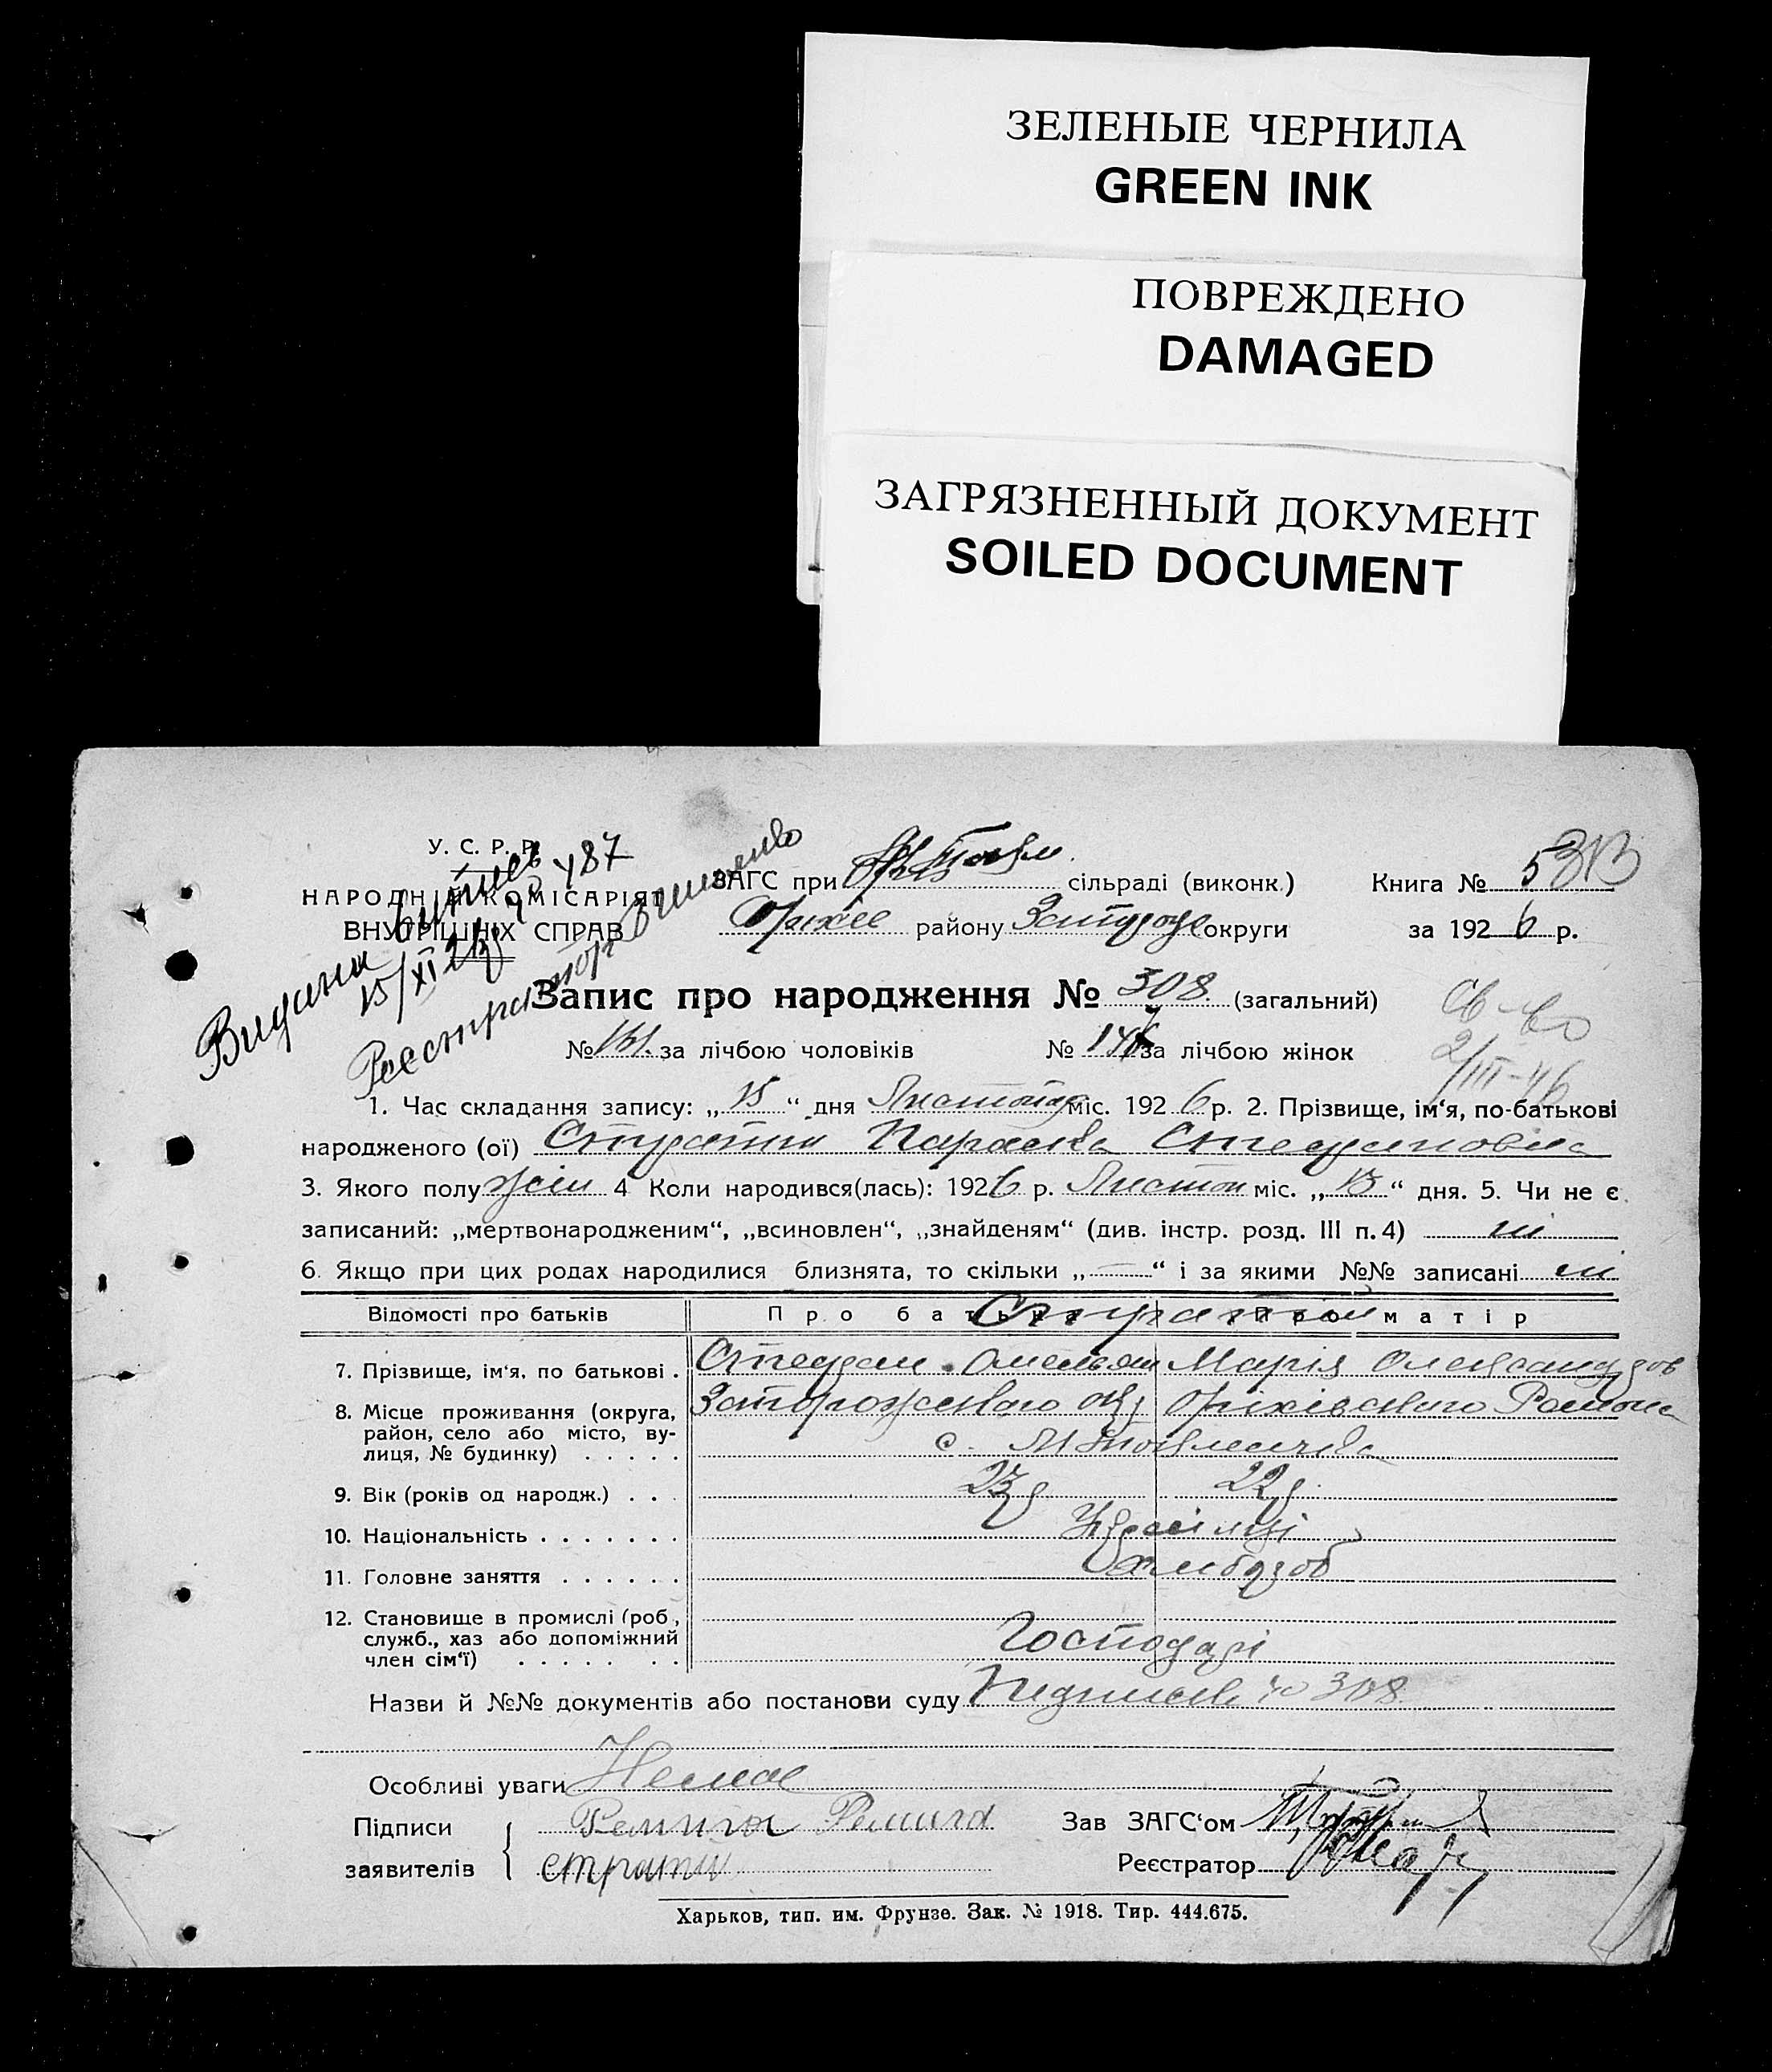 ЗЕЛЕНЫЕ ЧЕРНИЛА
GREEN INK
ПОВРЕЖДЕНО
DAMAGED
ЗАГРЯЗНЕННЫЙ ДОКУМЕНТ
SOILED DOCUMENT
У. С. Р. Р.
НАРОДНІЙ КОМІСАРІЯТ
ВНУТРІШНІХ СПРАВ
Видана 487
15/XI 26
Реєстратор
ЗАГС при сільраді (виконк.) Книга № 5 313
Оріхів району Запороз округи за 1926 р.
Запис про народження № 308 (загальний)
№ 161. за лічбою чоловіків № 147 за лічбою жінок
Св-во
2/III-46
1. Час складання запису: „15“ дня Листопад міс. 1926 р. 2. Прізвище, ім‘я, по-батькові
народженого (ої) Страти Параска Степановна
3. Якого полу жін 4 Коли народився(лась): 1926 р. Листоп міс. „13“ дня. 5. Чи не є
записаний: „мертвонародженим“, „всиновлен“, „знайденям“ (див. інстр. розд. III п. 4) ні
6. Якщо при цих родах народилися близнята, то скільки „—“ і за якими №№ записані ні
Відомості про батьків Про батька Про матір
7. Прізвище, ім‘я, по батькові . Степан Омельян Марія Олександров
8. Місце проживання (округа, Запорожського окр Оріхівського Района
район, село або місто, ву-
лиця, № будинку) . . . . . с.
9. Вік (років од народж.) . . . 23 р 22 р.
10. Національність . . . . . . . Українці
11. Головне заняття . . . . . . хлібороб
12. Становище в промислі (роб.,
служб., хаз або допоміжний Господарі
член сім‘ї) . . . . . . .
Назви й №№ документів або постанови суду 308.
Особливі уваги Немає
Підписи Зав ЗАГС‘ом
заявителів страти Реєстратор
Харьков, тип. им. Фрунзе. Зак. № 1918. Тир. 444.675.